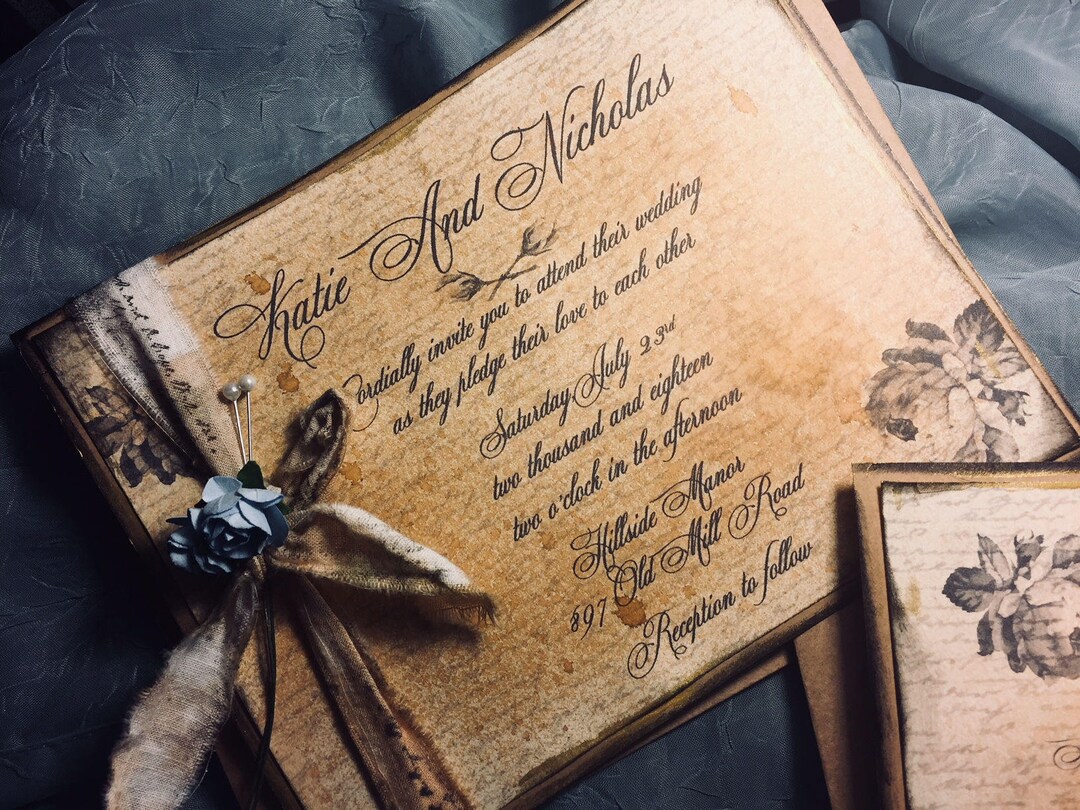 Katie And Nicholas
Cordially invite you to attend their wedding
as they pledge their love to each other
Saturday July 23rd
two thousand and eighteen
two o'clock in the afternoon
Hillside Manor
897 Old Mill Road
Reception to follow